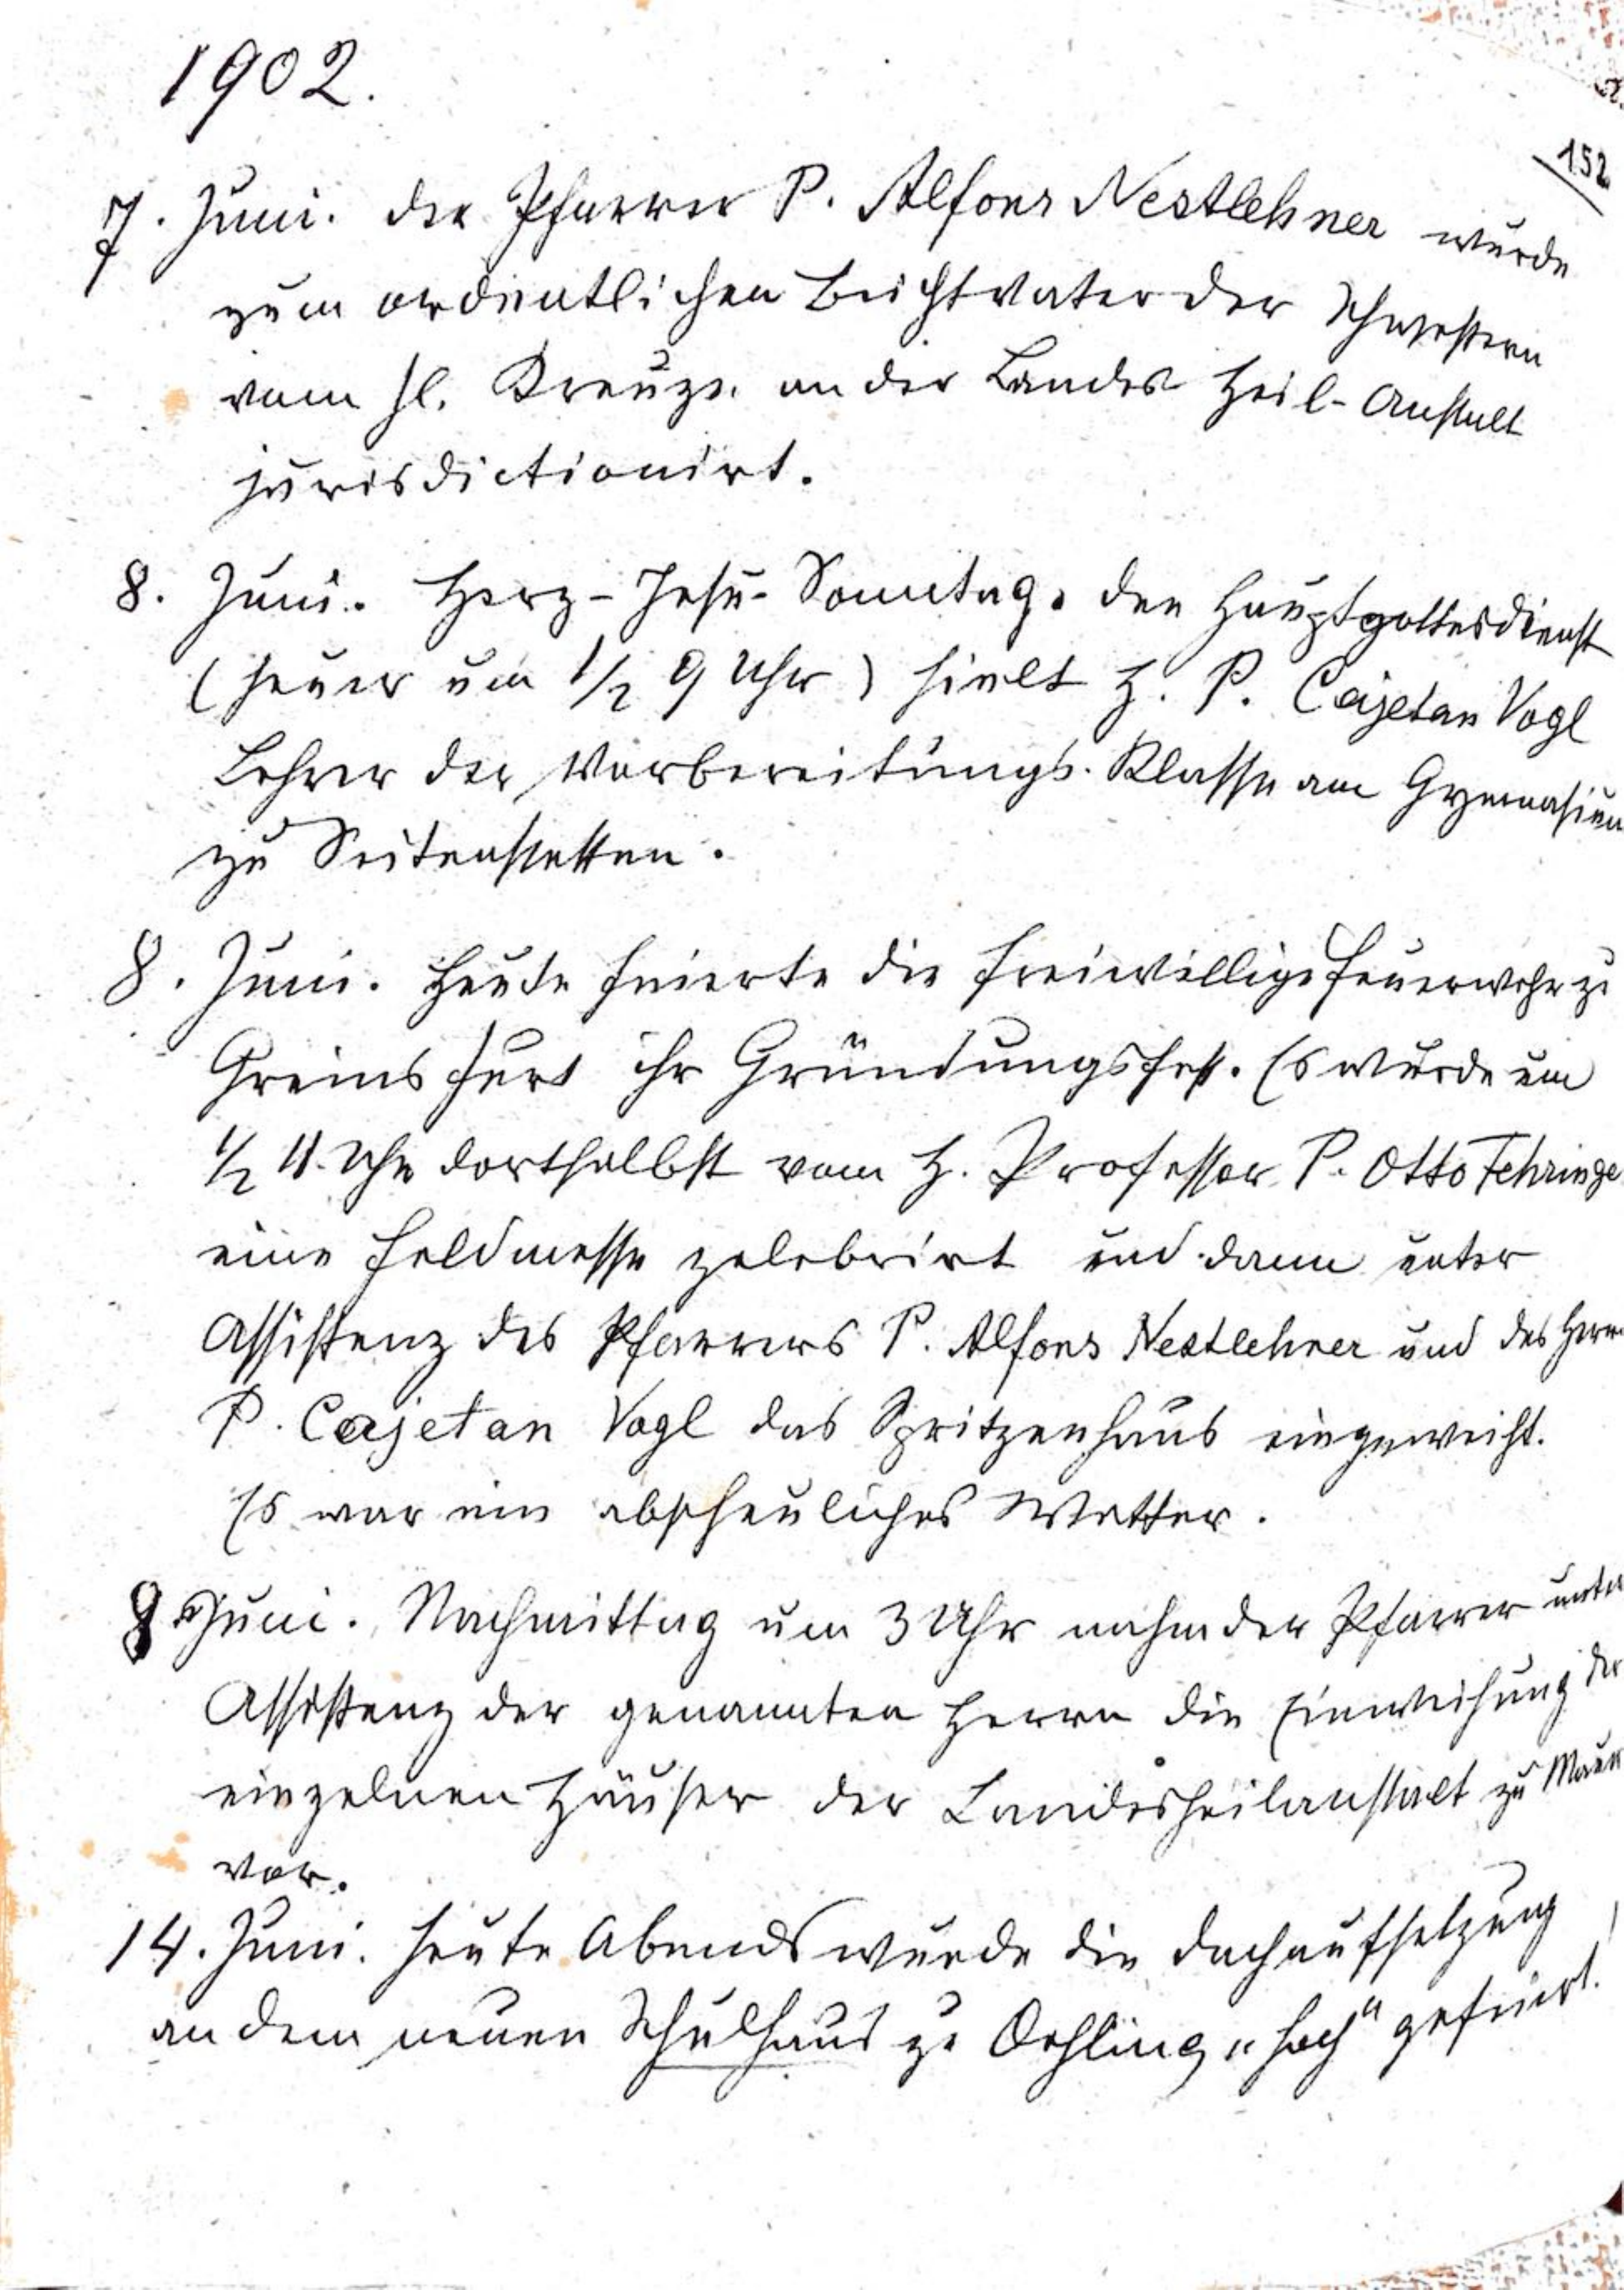 1902.
152
7. Juni. Der Pfarrer P. Alfons Nestlehner wurde
zum ordentlichen Beichtvater der Schwestern
vom hl. Kreuze an der Landes Heil-Anstalt
jurisdictionirt.
8. Juni. Herz-Jesu-Sonntag. Den Hauptgottesdienst
(heuer um 1/2 9 Uhr) hielt H. P. Cajetan Vogl
Lehrer der Vorbereitungs-Klasse am Gymnasium
zu Seitenstetten.
8. Juni. Heute feierte die freiwillige Feuerwehr zu
Greinsfurt ihr Gründungsfest. Es wurde um
1/2 11 Uhr dortselbst vom H. Professor P. Otto Fehringe
eine Feldmesse zelebrirt und dann unter
Assistenz des Pfarrers P. Alfons Nestlehner und des Herrn
P. Cajetan Vogl das Spritzenhaus eingeweiht.
Es war ein abscheuliches Wetter.
8 Juni. Nachmittag um 3 Uhr nahm der Pfarrer unter
Assistenz der genannten Herrn die Einweihung der
einzelnen Häuser der Landesheilanstalt zu Mauer
vor.
14. Juni. Heute Abends wurde die Dachaufsetzung
an dem neuen Schulhaus zu Oehling „hoch“ gefeiert.